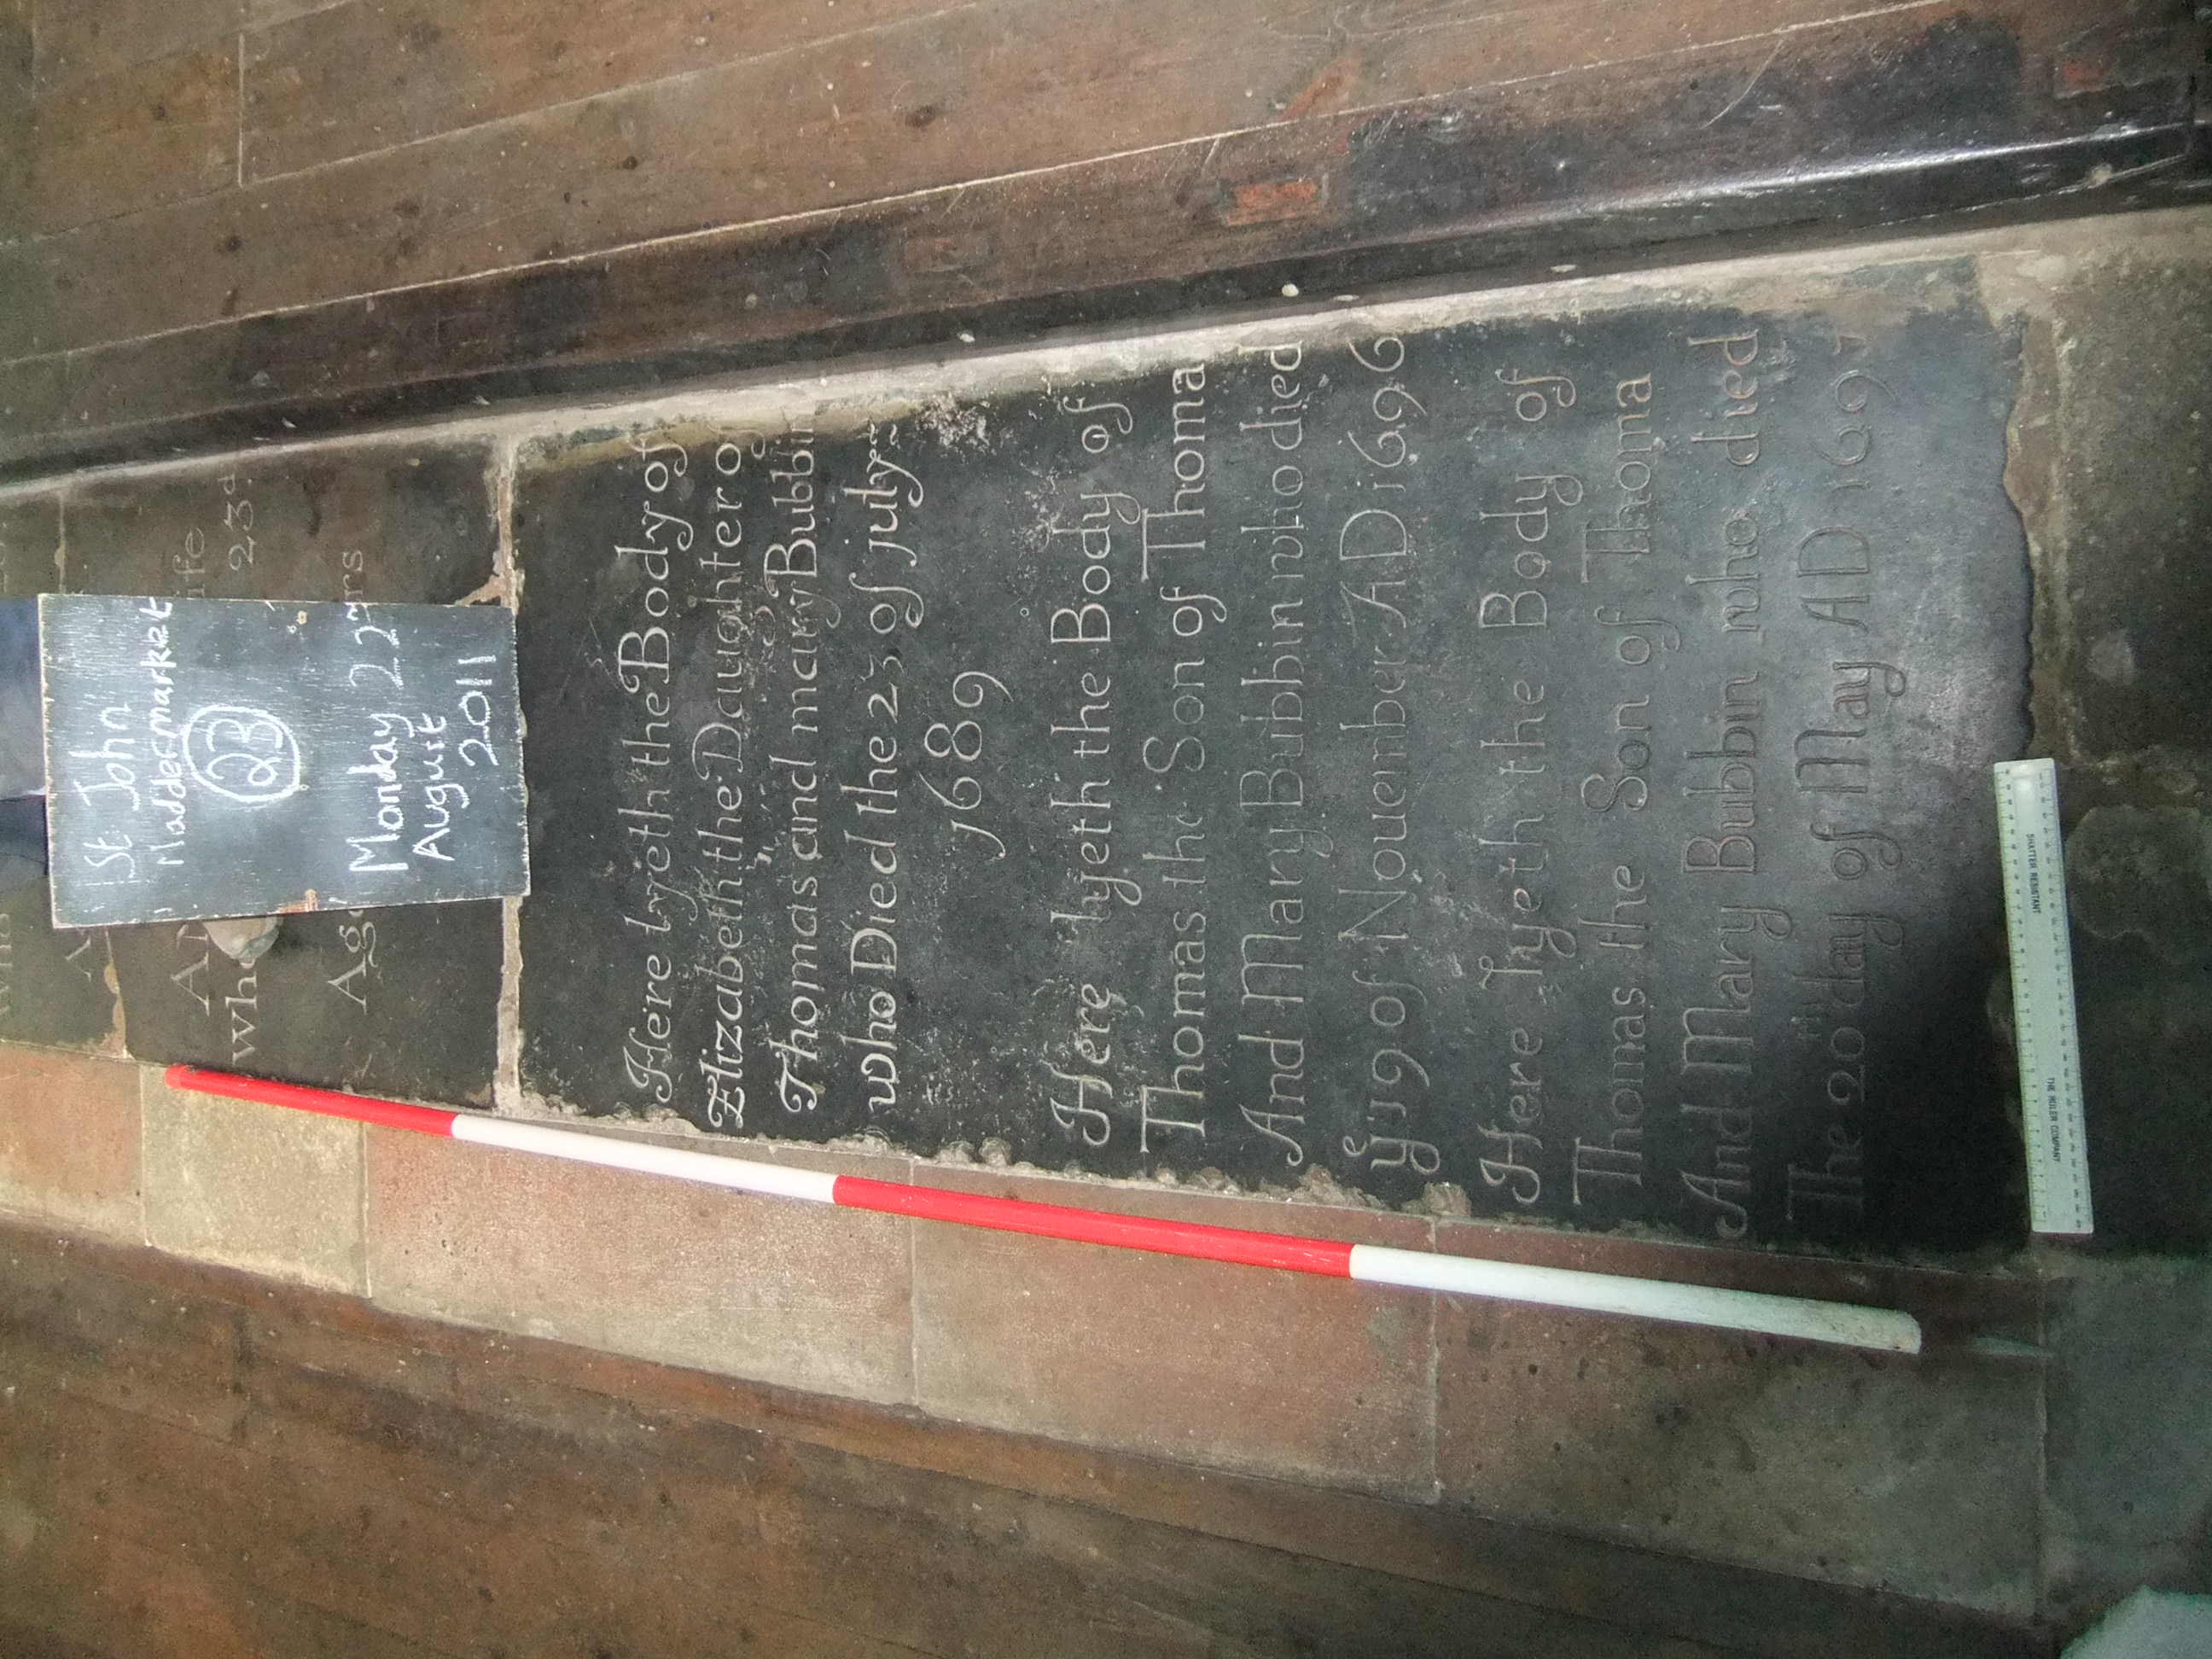 St. John
Maddermarket
23
Monday 22nd
August
2011
23d
Ag
Here lyeth the Body of
Elizabeth the Daughter o
Thomas and mary Bubbin
who Died the 23 of july
1689
Here lyeth the Body of
Thomas the Son of Thoma
And Mary Bubbin who died
ye 19 of Nouember AD 1696
Here lyeth the Body of
Thomas the Son of Thoma
And Mary Bubbin who died
The 20th day of May AD 1697
SHATTER RESISTANT
THE RULER COMPANY